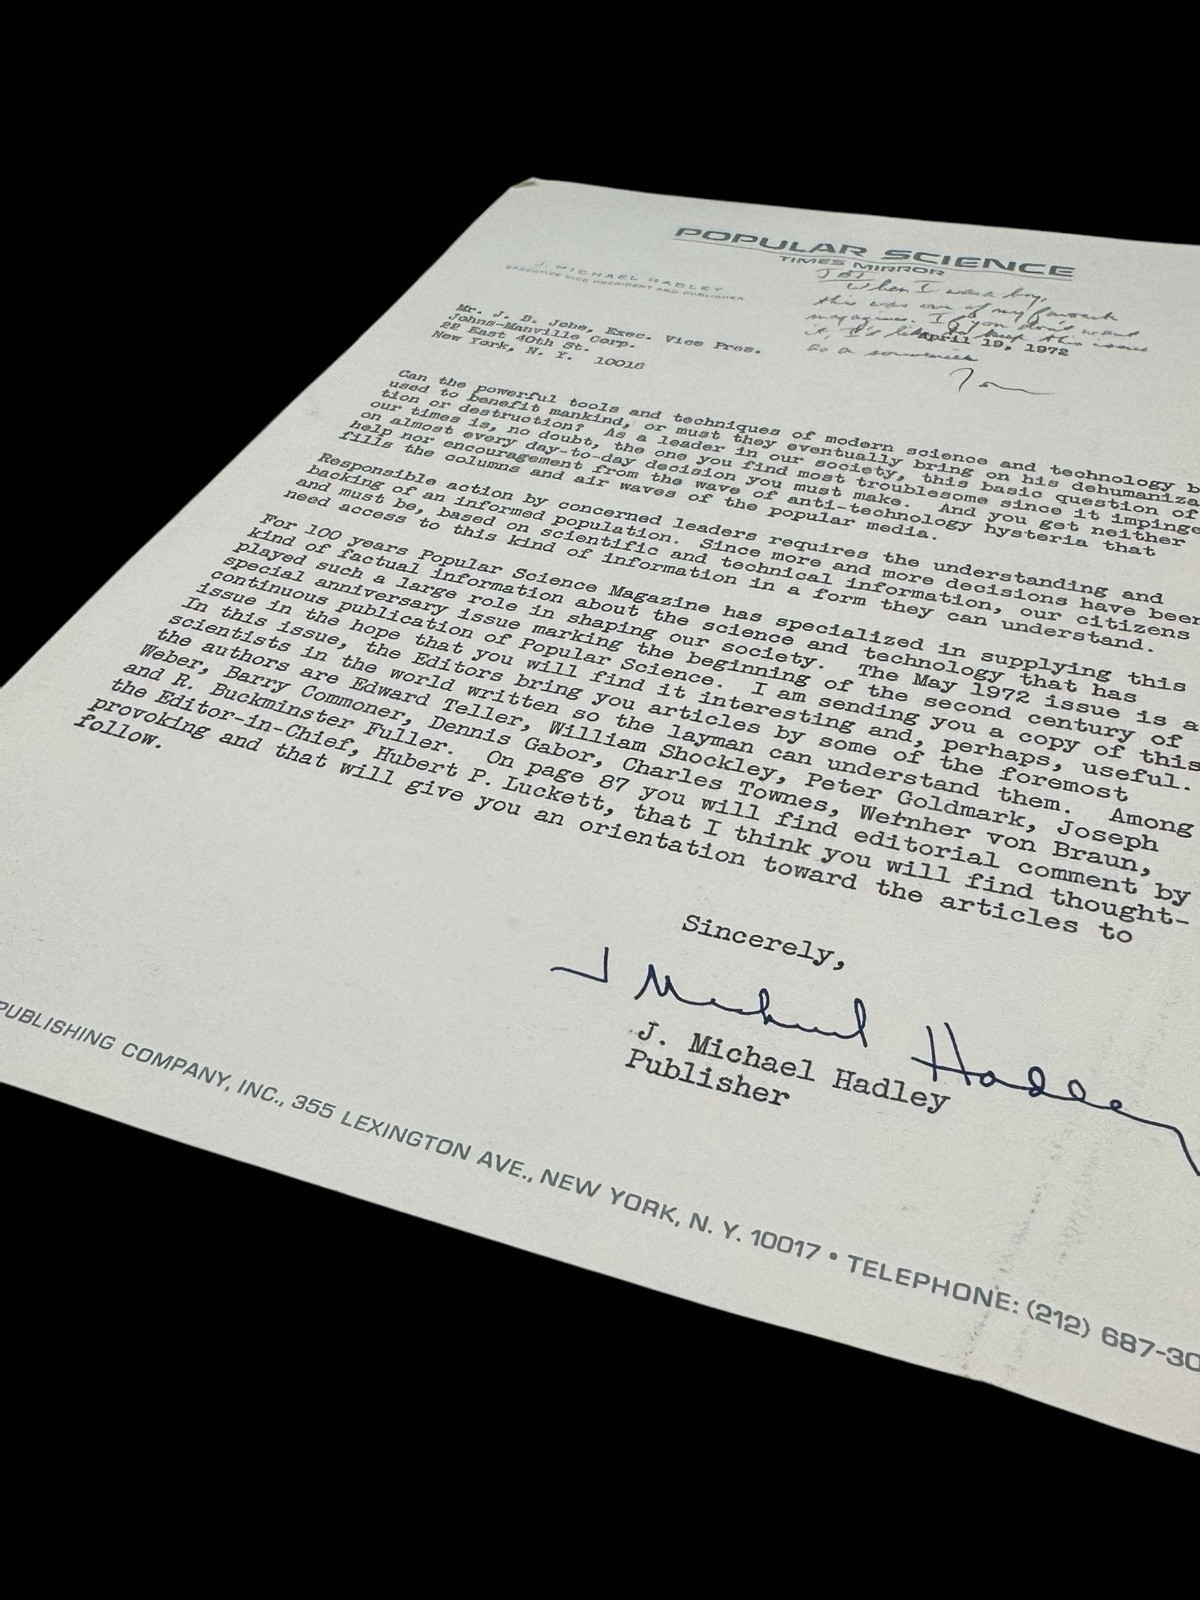 POPULAR SCIENCE
TIMES MIRROR
J. MICHAEL HADLEY
EXECUTIVE VICE PRESIDENT AND PUBLISHER
JBJ
When I was a boy,
this was one of my favorite
magazines. If you don't want
it, I'd like to keep this issue
as a souvenir
Tom
April 19, 1972
Mr. J. B. Jobe, Exec. Vice Pres.
Johns-Manville Corp.
22 East 40th St.
New York, N. Y. 10016
Can the powerful tools and techniques of modern science and technology b
used to benefit mankind, or must they eventually bring on his dehumaniza
tion or destruction? As a leader in our society, this basic question of
our times is, no doubt, the one you find most troublesome since it impinge
on almost every day-to-day decision you must make. And you get neither
help nor encouragement from the wave of anti-technology hysteria that
fills the columns and air waves of the popular media.
Responsible action by concerned leaders requires the understanding and
backing of an informed population. Since more and more decisions have been
and must be, based on scientific and technical information, our citizens
need access to this kind of information in a form they can understand.
For 100 years Popular Science Magazine has specialized in supplying this
kind of factual information about the science and technology that has
played such a large role in shaping our society. The May 1972 issue is a
special anniversary issue marking the beginning of the second century of
continuous publication of Popular Science. I am sending you a copy of this
issue in the hope that you will find it interesting and, perhaps, useful.
In this issue, the Editors bring you articles by some of the foremost
scientists in the world written so the layman can understand them. Among
the authors are Edward Teller, William Shockley, Peter Goldmark, Joseph
Weber, Barry Commoner, Dennis Gabor, Charles Townes, Wernher von Braun,
and R. Buckminster Fuller. On page 87 you will find editorial comment by
the Editor-in-Chief, Hubert P. Luckett, that I think you will find thought-
provoking and that will give you an orientation toward the articles to
follow.
Sincerely,
J Michael Hadley
J. Michael Hadley
Publisher
PUBLISHING COMPANY, INC., 355 LEXINGTON AVE., NEW YORK, N. Y. 10017 • TELEPHONE: (212) 687-30